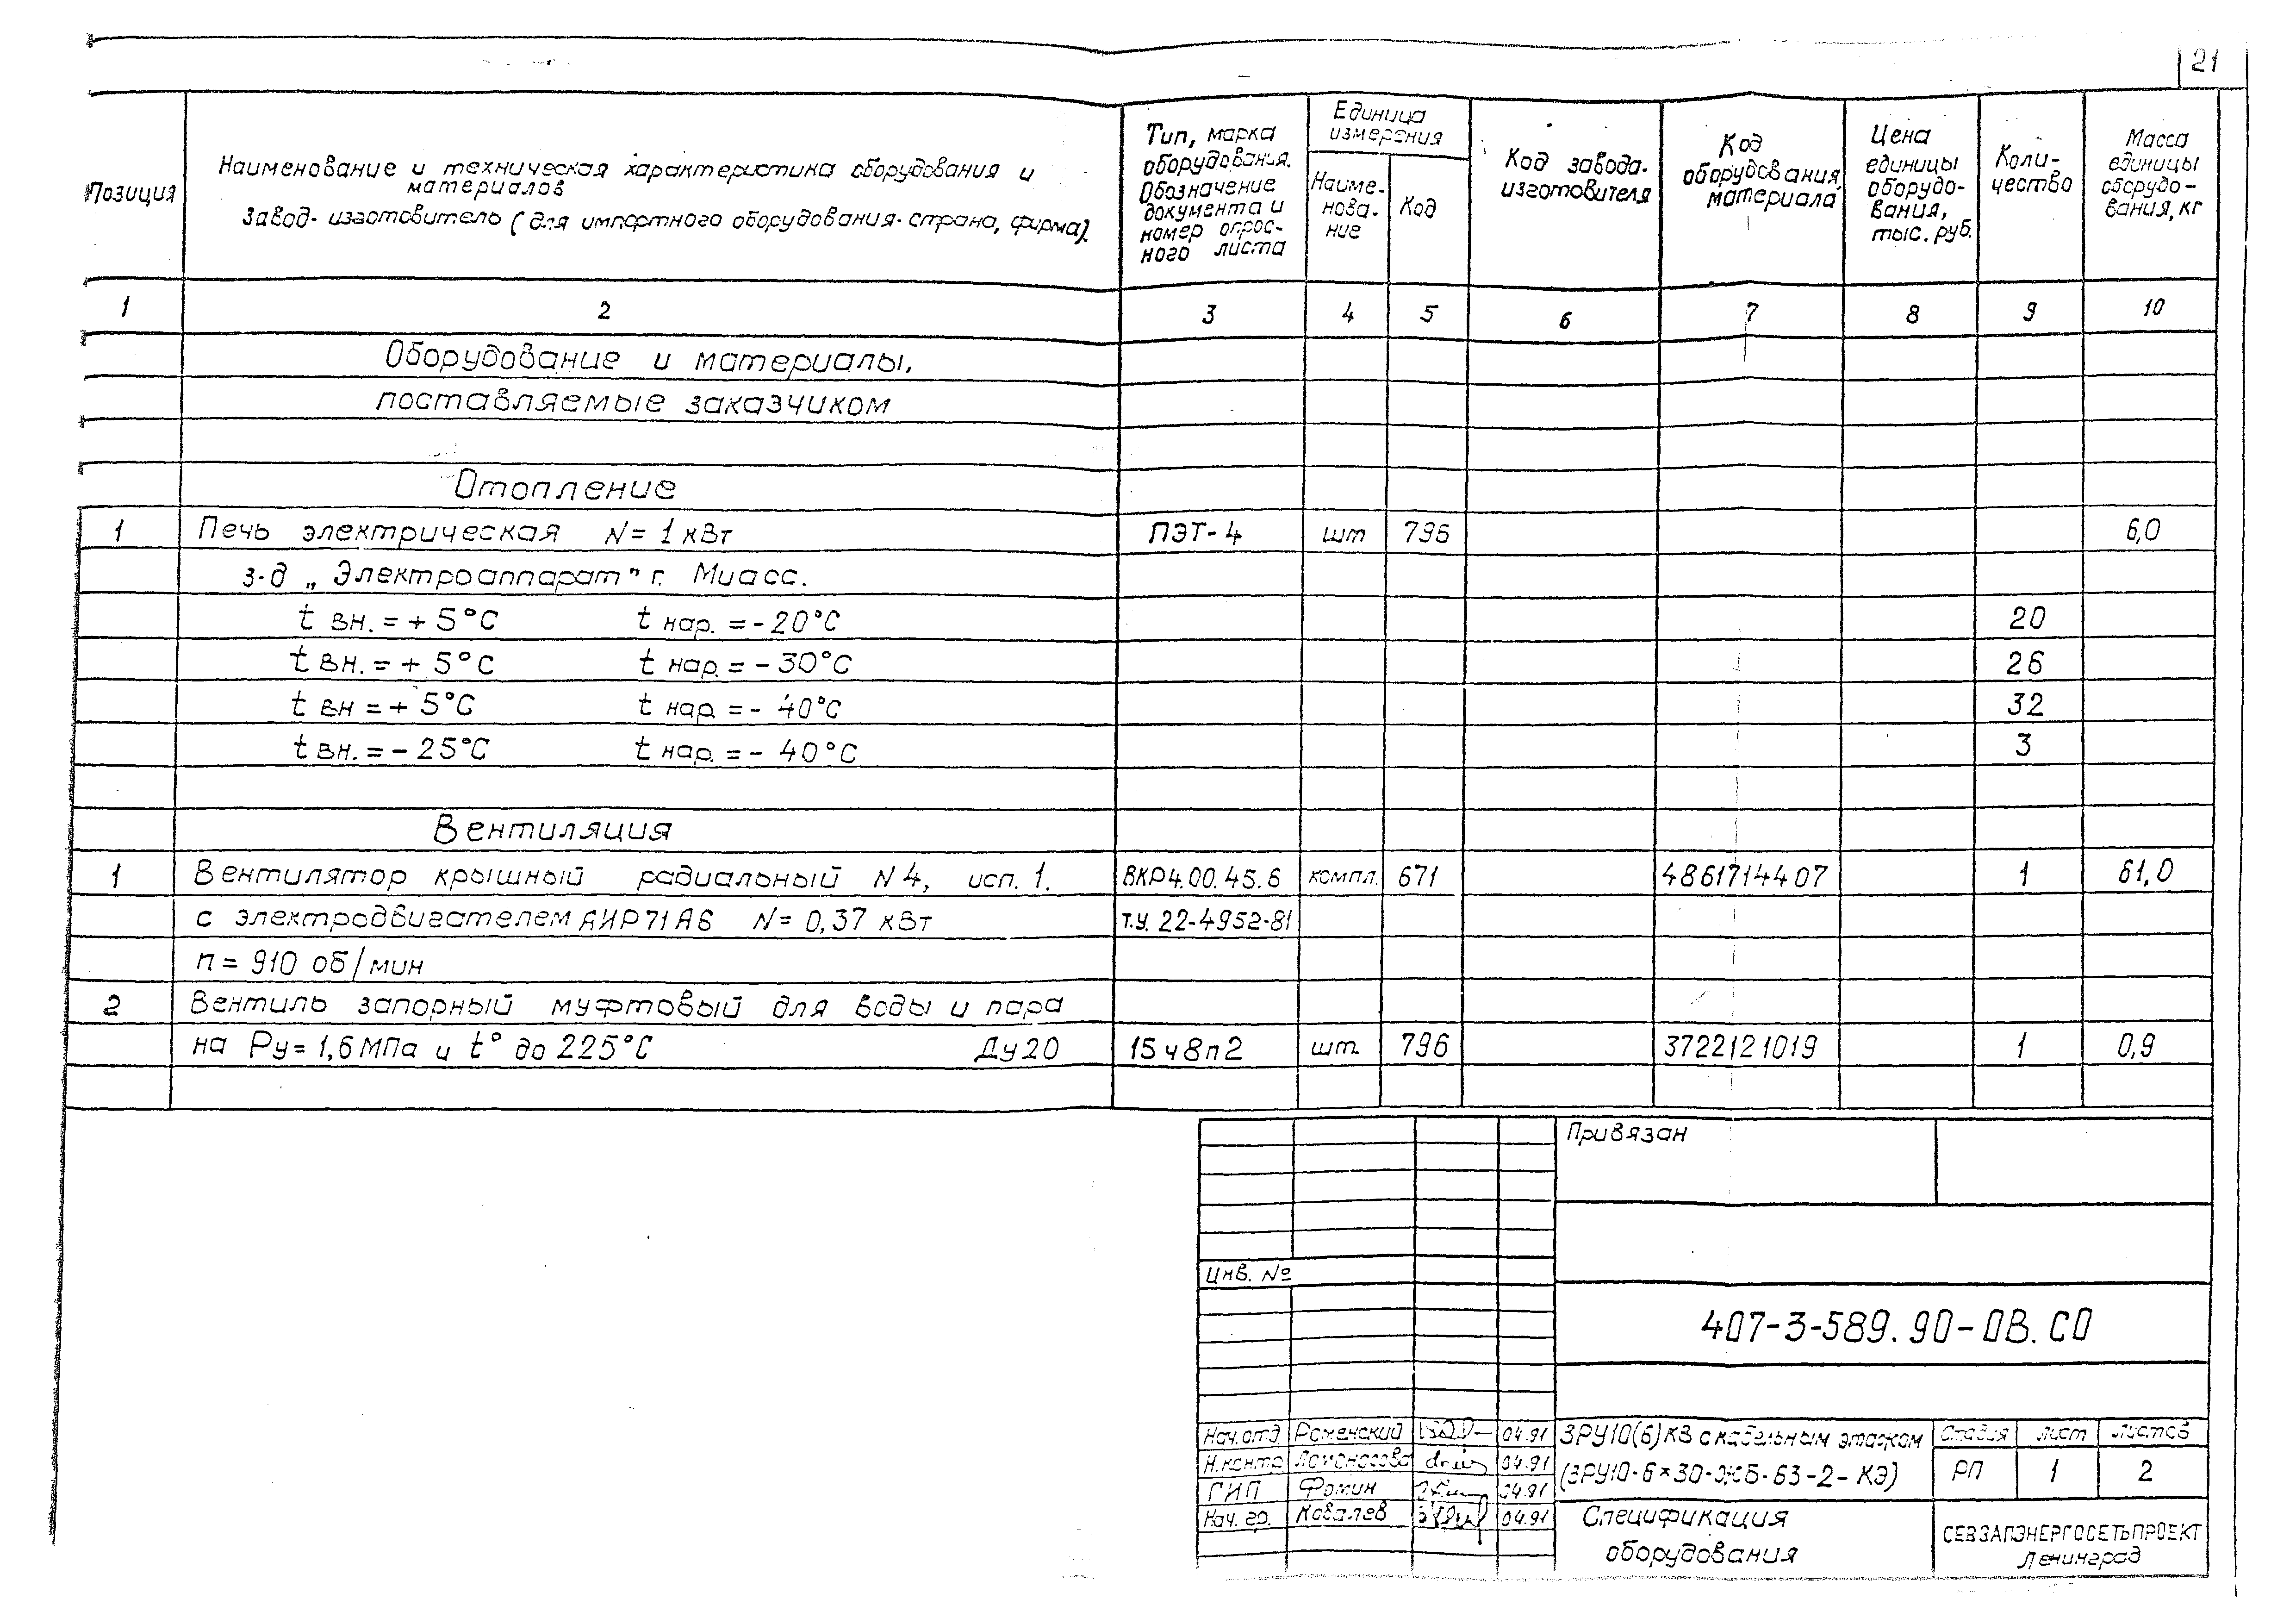 21
Позиция
Наименование и техническая характеристика оборудования и
материалов
Завод-изготовитель (для импортного оборудования-страна, фирма).
Тип, марка
оборудования.
Обозначение
документа и
номер опрос-
ного листа
Единица
измерения
Наиме-
нова-
ние
Код
Код завода-
изготовителя
Код
оборудования,
материала
Цена
единицы
оборудо-
вания,
тыс. руб.
Коли-
чество
Масса
единицы
оборудо-
вания, кг
1 2 3 4 5 6 7 8 9 10
Оборудование и материалы,
поставляемые заказчиком
Отопление
1 Печь электрическая N = 1 кВт ПЭТ-4 шт 796 6,0
з-д „Электроаппарат" г. Миасс.
t вн. = + 5°С t нар. = - 20°С 20
t вн. = + 5°С t нар. = - 30°С 26
t вн = + 5°С t нар. = - 40°С 32
t вн. = - 25°С t нар. = - 40°С 3
Вентиляция
1 Вентилятор крышный радиальный N 4, исп. 1. ВКР4.00.45.6 компл. 671 4861714407 1 61,0
с электродвигателем АИР71А6 N = 0,37 кВт т.у. 22-4952-81
n = 910 об/мин
2 Вентиль запорный муфтовый для воды и пара
на Ру = 1,6 МПа и t° до 225°С Ду 20 15ч8п2 шт. 796 3722121019 1 0,9
Привязан
Инв. №
407-3-589.90-ОВ.СО
Нач. отд. Роменский 04.91
Н.контр Ломоносова 04.91
ГИП Фомин 04.91
Нач. гр. Ковалев 04.91
ЗРУ10(6)кВ с кабельным этажом
(ЗРУ10-6×30-ЖБ-63-2-КЭ)
Стадия Лист Листов
РП 1 2
Спецификация
оборудования
СЕВЗАПЭНЕРГОСЕТЬПРОЕКТ
Ленинград